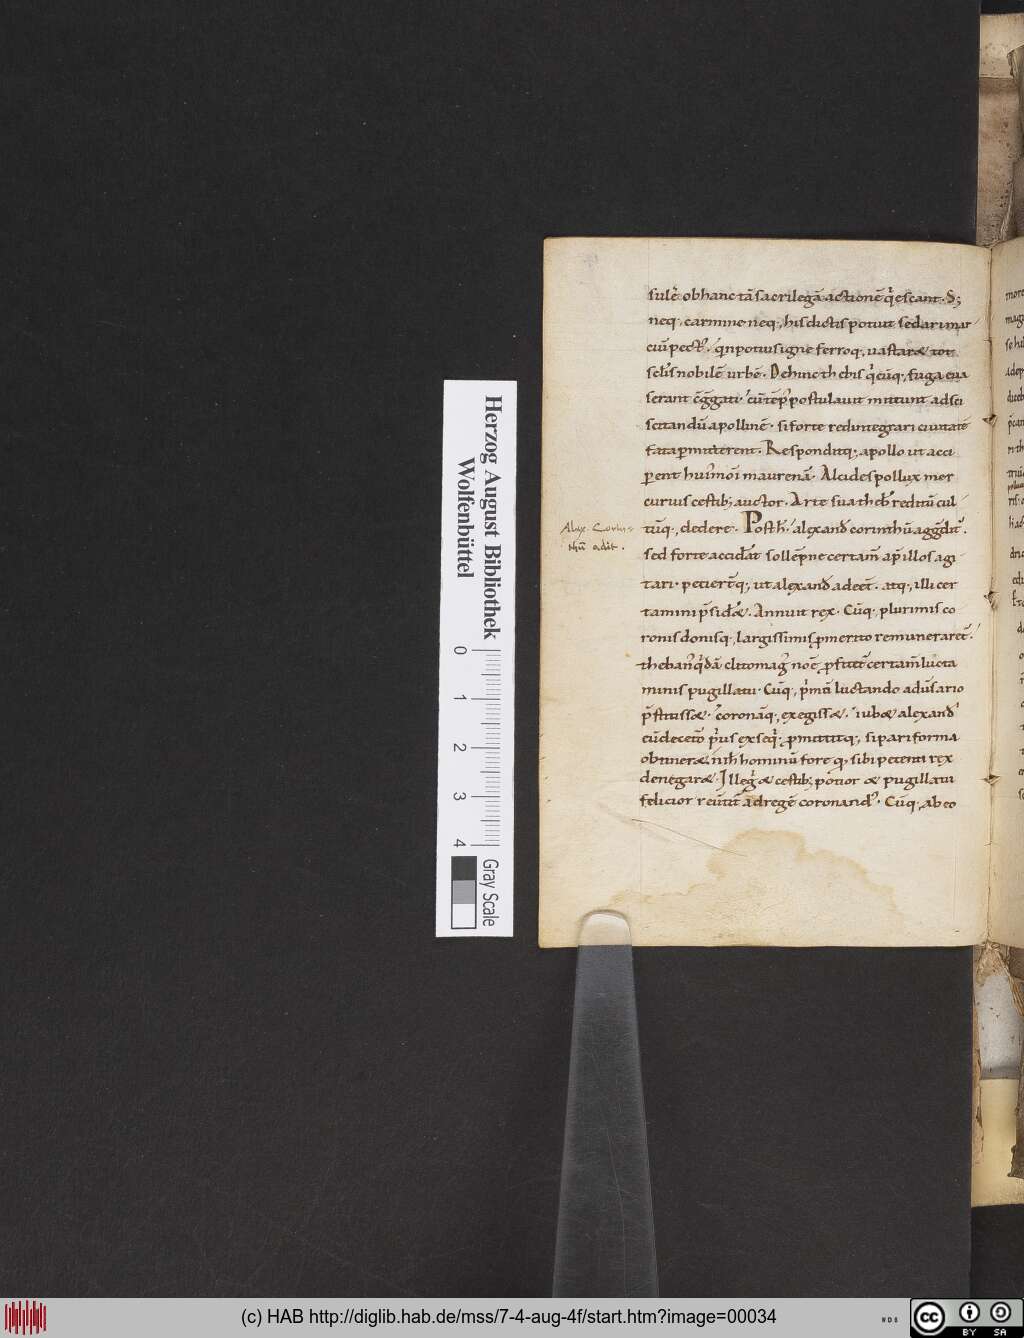 sulẽ obhanc tã sacrilegã actionẽ q̇escant. S;
neq, carmine neq, his dictis potuit sedari mar
ciũ pect᷒. qn potuisigne ferroq, uastaræ tot
sclis nobilẽ urbẽ. Dehinc thebis q̇cũq, fuga eua
serant c̃g̃gati
postulauit mittunt ad sci
scitandũ apollinẽ. si forte redintegrari ciuitatẽ
fata ꝑmitterent. Responditq, apollo ut acci
perent hui᷒moi maurenã. Alcides pollux mer
curius cestib; auctor. Arte sua theb reditũ cul
tũq, dedere. Post h̃. alexand corinthũ agg̃dit᷒.
sed forte acciderat sollẽpne certam̃ ap illos agi
tari. petiert̃q, ut alexand adeet̃. atq, illi cer
tamini p̃sidæ. Annuit rex. Cũq, plurimis co
ronis donisq, largissimis ꝑmerito remuneraret᷒.
theban᷒ qdã clitomag᷒ noẽ, ꝓfitet᷒ certam̃ lucta
minis pugillatu. Cũq, p̃mũ luctando adu̇sario
p̃stitissæ. coronãq, exegissæ. iubæ alexand
cũ decetõ p̃us exseq. ꝓmittitq, si pari forma
obtineræ nih hominũ fore q, sibi petenti rex
denegaræ. Ille g æ cestib; potior æ pugillatu
felicior reũtit᷒ ad regẽ coronand᷒. Cũq, ab eo
Alex Corin=
thũ adit.
Herzog August Bibliothek
Wolfenbüttel
0
1
2
3
4
Gray Scale
(c) HAB http://diglib.hab.de/mss/7-4-aug-4f/start.htm?image=00034
WDB
cc BY SA